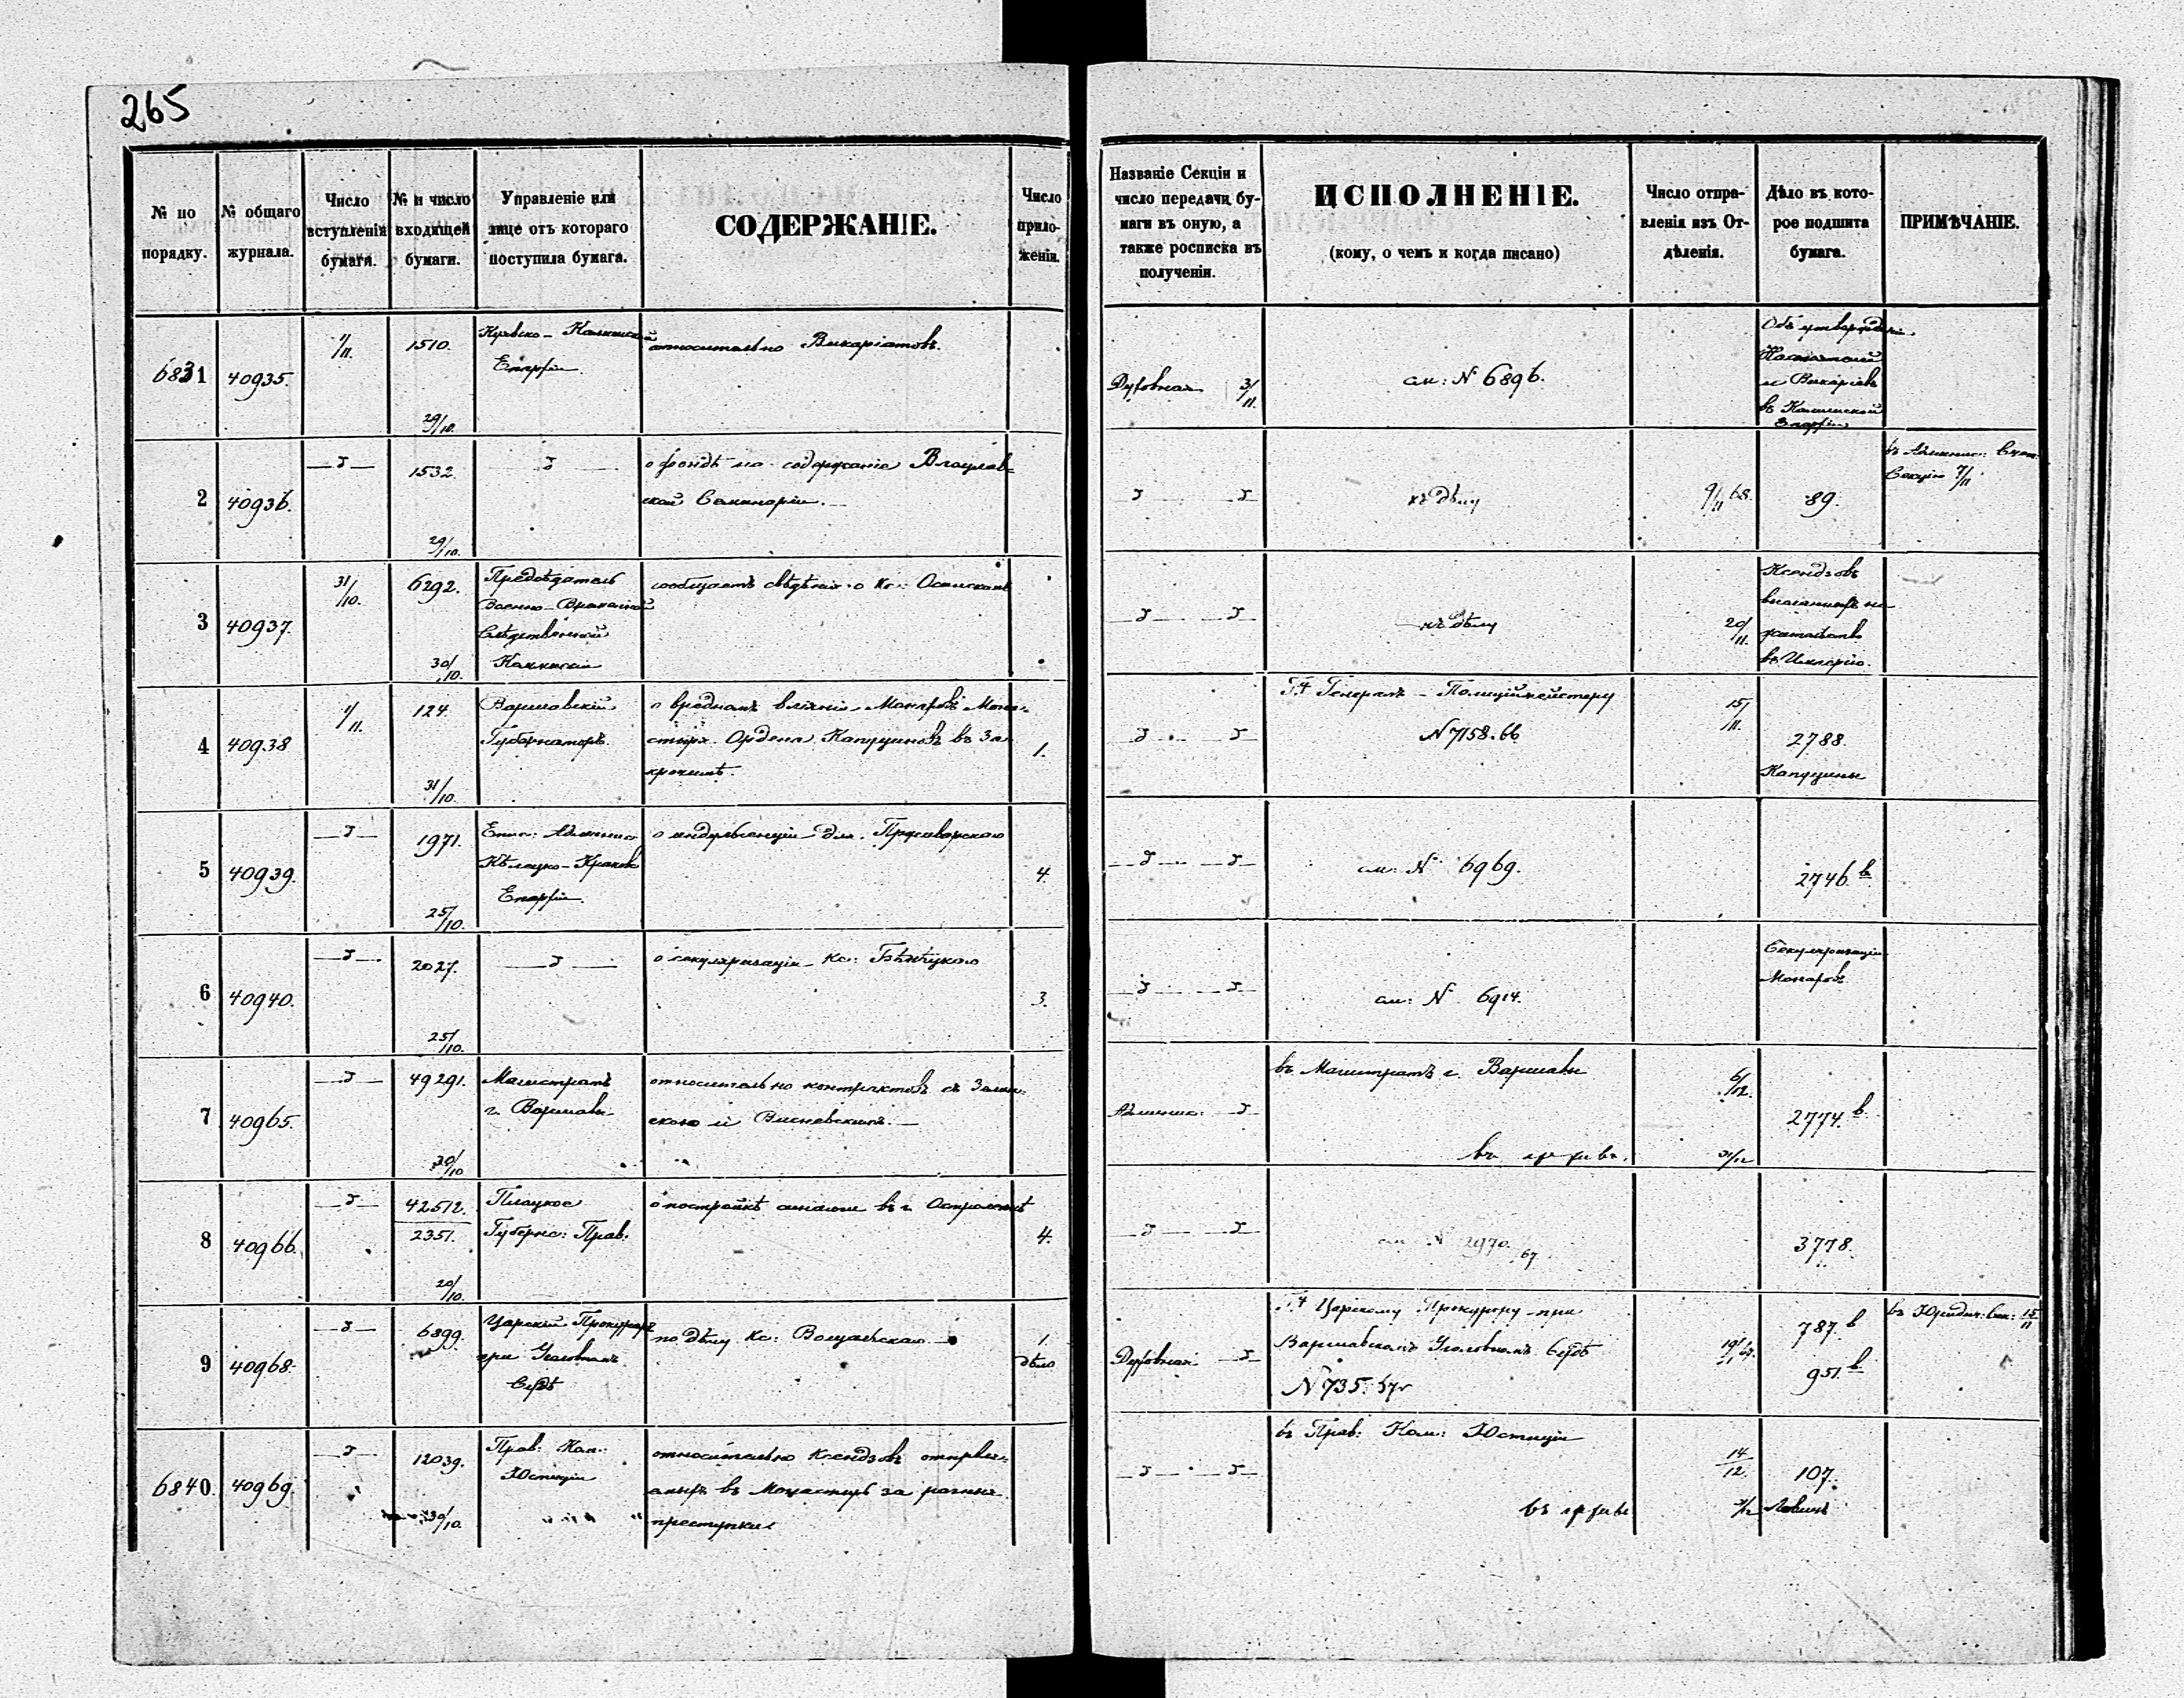 265
№ по порядку.
№ общаго журнала.
Число вступленія бумаги.
№ и число входящей бумаги.
Управленіе или лице отъ котораго поступила бумага.
СОДЕРЖАНІЕ.
Число приложеніи.
Названіе Секціи и число передачи бумаги въ оную, а также росписка въ полученіи.
ИСПОЛНЕНІЕ.
(кому, о чемъ и когда писано)
Число отправленія изъ Отдѣленія.
Дѣло въ которое подшита бумага.
ПРИМѢЧАНІЕ.
6831
40935.
1/11.
1510.
29/10.
Епархіи.
относительно Викаріатовъ.
Духовная 3/11.
см: № 6896.
Объ утвержденіи
и Викаріевъ
въ Калишской
Епархіи
2
40936.
1532.
29/10.
о фондѣ на содержаніе Влоцлав-
ской Семинаріи.
къ дѣлу
9/11 68.
89.
Секцію 7/11
3
40937.
31/10.
6292.
30/10.
Предсѣдатель
Военно-
Слѣдственной
Коммисіи
сообщаетъ свѣдѣнія о Кс:
къ дѣлу
20/11.
Ксендзовъ
высланныхъ на
жительство
въ Имперію.
4
40938
1/11.
124.
31/10.
Варшавскій
Губернаторъ.
о вредномъ вліяніи Монаховъ Мона-
стыря Ордена Капуциновъ въ За-
крочимѣ.
1.
Гну Генералъ-Полиціймейстеру
№ 7158.66
15/11.
2788.
Капуцины
5
40939.
1971.
25/10.
Епис:
Кѣлецко-Краков
Епархіи.
о индульгенціи для
4.
см: № 6969.
2746.в
6
40940.
2027.
25/10.
о секуляризаціи Кс:
3.
см: № 6914.
Секуляризаціи
Монаховъ
7
40965.
49291.
30/10
Магистратъ
г. Варшавы
относительно контрактовъ съ
и Висневскимъ.
въ Магистратъ г. Варшавы
въ архивъ.
6/12.
31/12
2774.в
8
40966.
42512.
2351.
20/10.
Плоцкое
Губернс: Прав.
о постройкѣ въ г. Остроленкѣ
4.
см № 2970. 67
3778.
9
40968.
6899.
Царскій Прокуроръ
при Уголовномъ
Судѣ
по дѣлу Кс:
1.
дѣло
Духовная
Гну Царскому Прокурору при
Варшавскомъ Уголовномъ Судѣ
№ 735. 67г
787.в
951.в
въ Юридич: Сек: 15/11
6840.
40969.
12039.
30/10.
Прав: Ком:
Юстиціи
относительно Ксендзовъ отправлен-
ныхъ въ Монастырь за разные
преступки
въ Прав: Ком: Юстиціи
въ архивъ
14/12.
107.